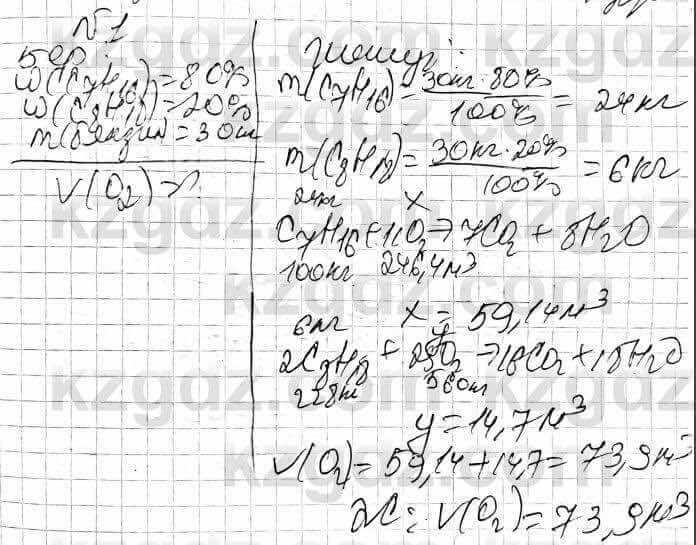 №1
Бер:
w(C7H16)=80%
w(C8H18)=20%
m(бензин)=30кг
V(O2)=?
Шешуі:
m(C7H16)=30кг·80%/100%=24кг
m(C8H18)=30кг·20%/100%=6кг
24кг x
C7H16+11O2→7CO2+8H2O
100кг 246,4м3
x=59,14м3
6кг y
2C8H18+25O2→16CO2+18H2O
228кг 560м
y=14,7м3
V(O2)=59,14+14,7=73,9м3
Ж: V(O2)=73,9м3
kzgdz.com